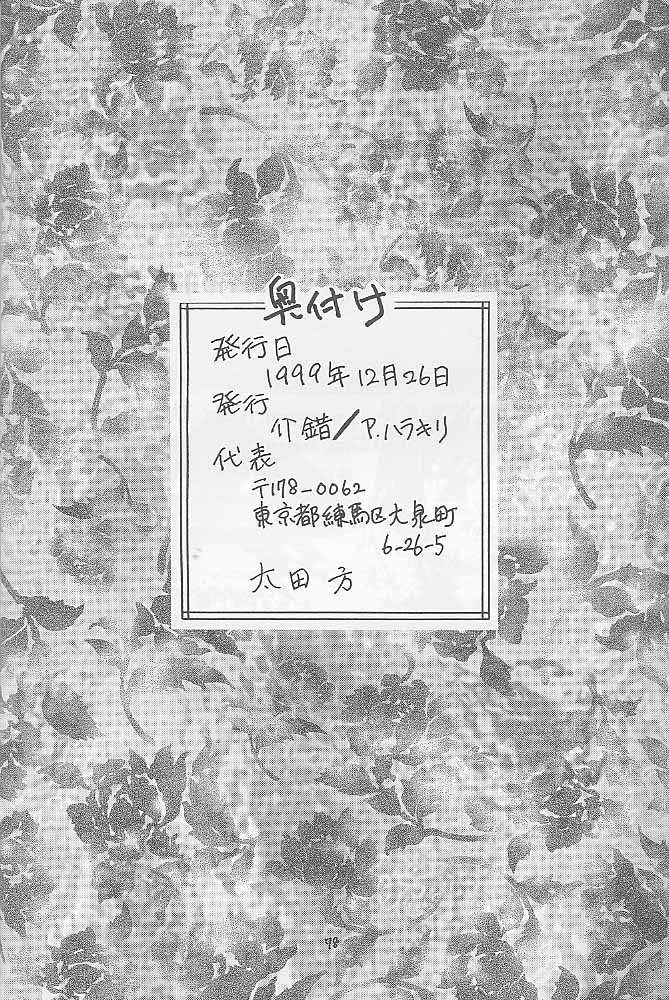 奥付け
発行日
1999年12月26日
発行
介錯/P.ハラキリ
代表
〒178-0062
東京都練馬区大泉町
6-26-5
太田 方
78